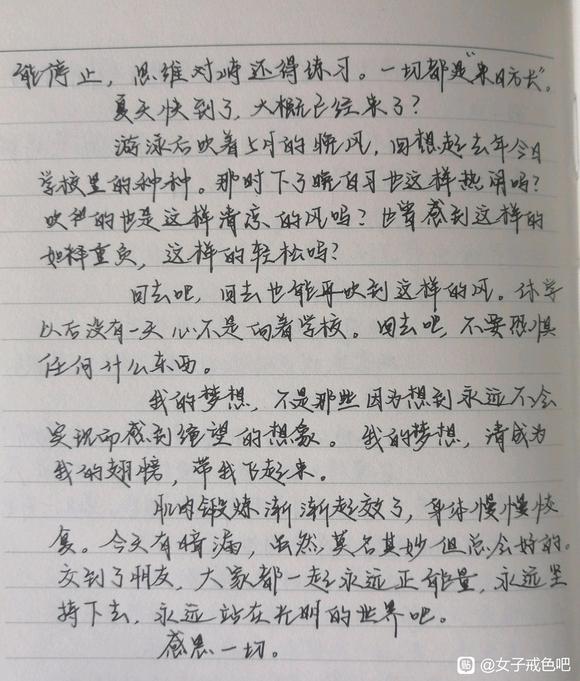 能停止，思维对峙还得练习。一切都是“来日方长”。
夏天快到了，大概已经来了？
游泳后吹着5月的晚风，回想起去年今日
学校里的种种。那时下了晚自习也这样热闹吗？
吹我的也是这样清凉的风吗？也曾感到这样的
如释重负，这样的轻松吗？
回去吧，回去也能再吹到这样的风。休学
以后没有一天心不是向着学校。回去吧，不要恐惧
任何什么东西。
我的梦想，不是那些因为想到永远不会
实现而感到绝望的想象。我的梦想，请成为
我的翅膀，带我飞起来。
肌肉锻炼渐渐起效了，身体慢慢恢
复。今天有暗漏，虽然莫名其妙但总会好的。
交到了朋友，大家都一起永远正能量，永远坚
持下去，永远站在光明的世界吧。
感恩一切。
贴 @女子戒色吧